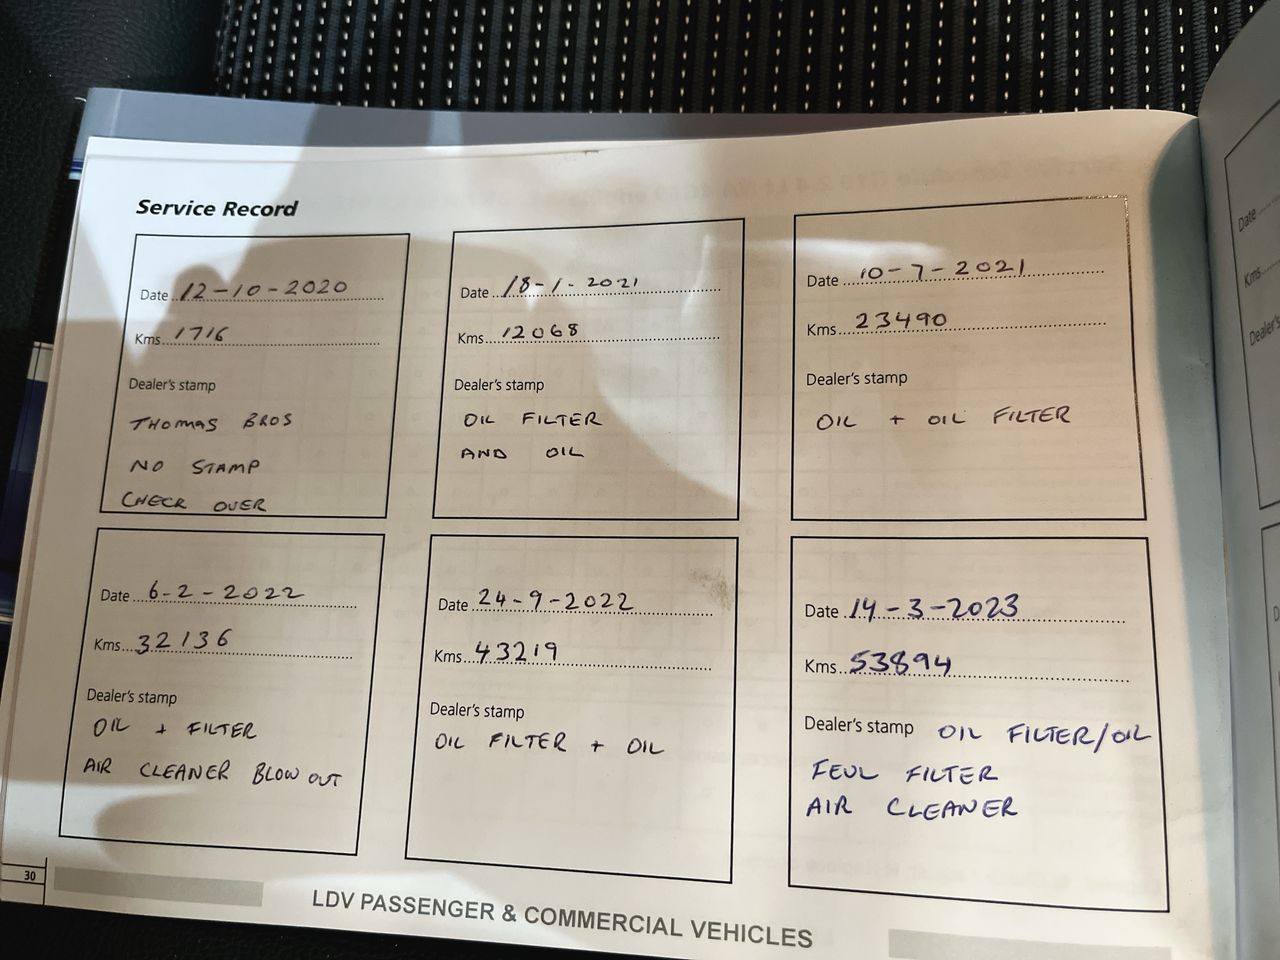 Service Record
Date 12-10-2020
Kms 1716
Dealer's stamp
THOMAS BROS
NO STAMP
CHECK OVER
Date 18-1-2021
Kms 12068
Dealer's stamp
OIL FILTER
AND OIL
Date 10-7-2021
Kms 23490
Dealer's stamp
OIL + OIL FILTER
Date 6-2-2022
Kms 32136
Dealer's stamp
OIL + FILTER
AIR CLEANER BLOW OUT
Date 24-9-2022
Kms 43219
Dealer's stamp
OIL FILTER + OIL
Date 14-3-2023
Kms 53894
Dealer's stamp OIL FILTER/OIL
FEUL FILTER
AIR CLEANER
30
LDV PASSENGER & COMMERCIAL VEHICLES
Date
Kms
Dealer's